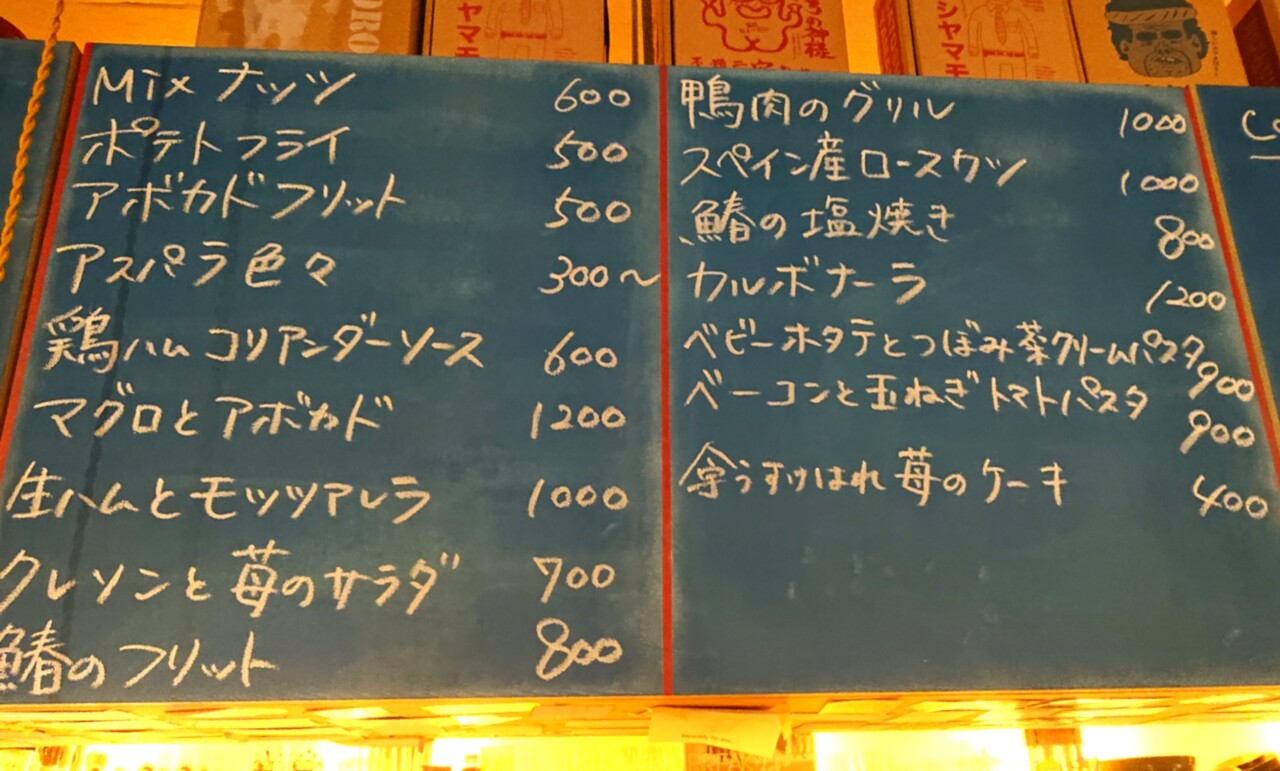 シヤマモ
シヤマモ
Mix ナッツ 600
ポテトフライ 500
アボカドフリット 500
アスパラ色々 300〜
鶏ハム コリアンダーソース 600
マグロとアボカド 1200
生ハムとモッツアレラ 1000
クレソンと苺のサラダ 700
鰆のフリット 800
鴨肉のグリル 1000
スペイン産ロースカツ 1000
鰆の塩焼き 800
カルボナーラ 1200
ベビーホタテとつぼみ菜クリームパスタ 900
ベーコンと玉ねぎトマトパスタ 900
うすけはれ 苺のケーキ 400